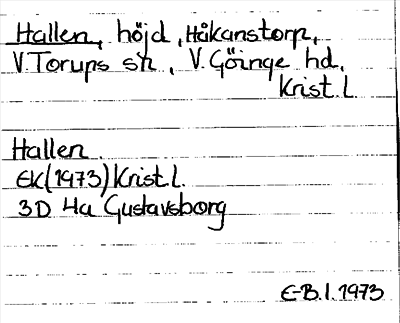 Hallen, höjd, Håkanstorp,
V. Torups sn, V. Göinge hd,
Krist. l.
Hallen
EK(1973) Krist. l.
3D 4a Gustavsborg
E-B. l. 1973